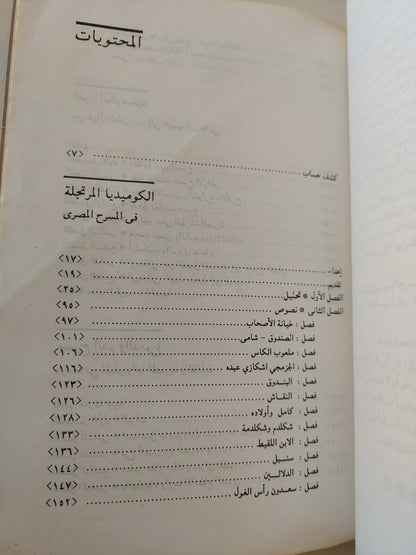 المحتويات
كشف حساب ........ <٧>
الكوميديا المرتجلة
فى المسرح المصرى
إهداء ........ <١٧>
تقديم ........ <١٩>
الفصل الأول * تحليل ........ <٢٥>
الفصل الثانى * نصوص ........ <٩٥>
فصل : خيانة الأصحاب ........ <٩٧>
فصل : الصندوق – شامى ........ <١٠١>
فصل : ملعوب الكاس ........ <١٠٦>
فصل : الجزمجي اشكازي عبده ........ <١١٦>
فصل : البندوق ........ <١٢٣>
فصل : النقاش ........ <١٢٦>
فصل : كامل وأولاده ........ <١٢٨>
فصل : شكلدم وشكلدمة ........ <١٣٣>
فصل : الابن اللقيط ........ <١٣٦>
فصل : سنبل ........ <١٤٤>
فصل : الدلالين ........ <١٤٧>
فصل : سعدون رأس الغول ........ <١٥٢>